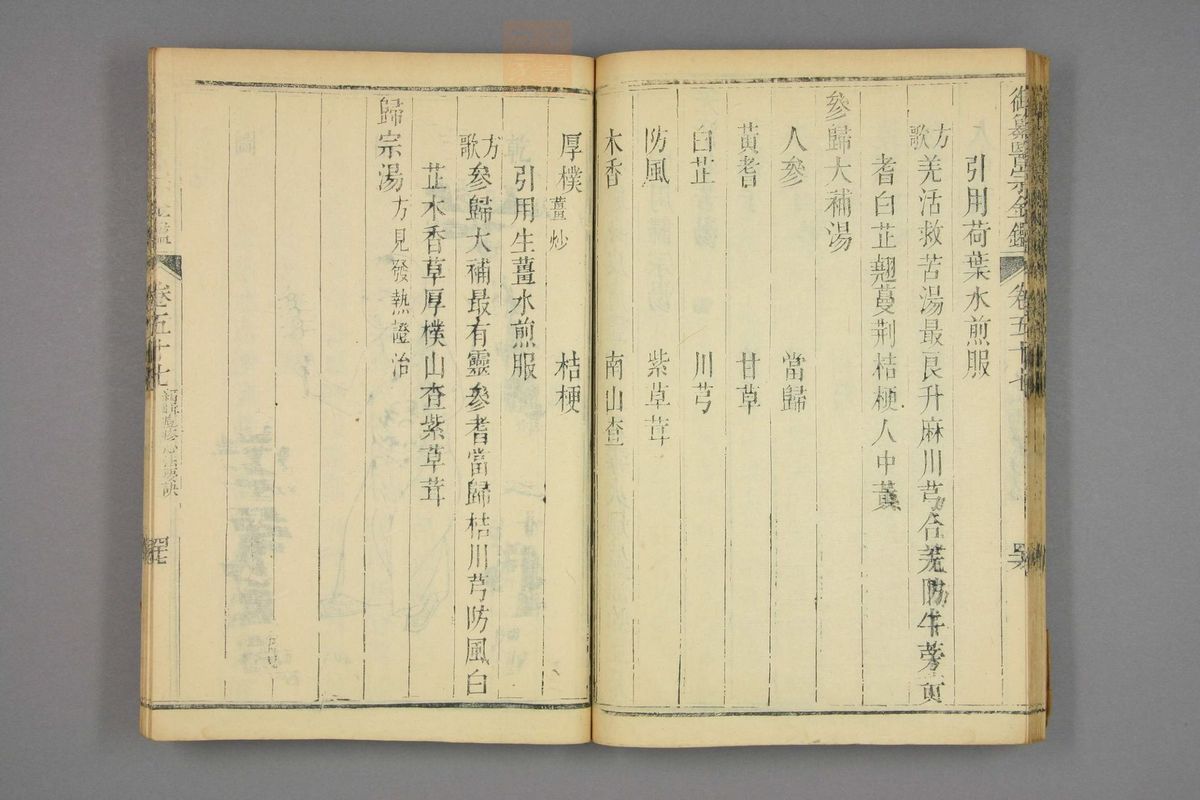 御纂醫宗金鑑 卷五十七
引用荷葉水煎服
方歌 羌活救苦湯最良升麻川芎合羌防牛蒡黃
耆白芷翹蔓荆桔梗人中黃
參歸大補湯
人參 當歸
黃耆 甘草
白芷 川芎
防風 紫草茸
木香 南山查
厚樸薑炒 桔梗
引用生薑水煎服
方歌 參歸大補最有靈參耆當歸桔川芎防風白
芷木香草厚樸山查紫草茸
歸宗湯方見發熱證治
卷五十七